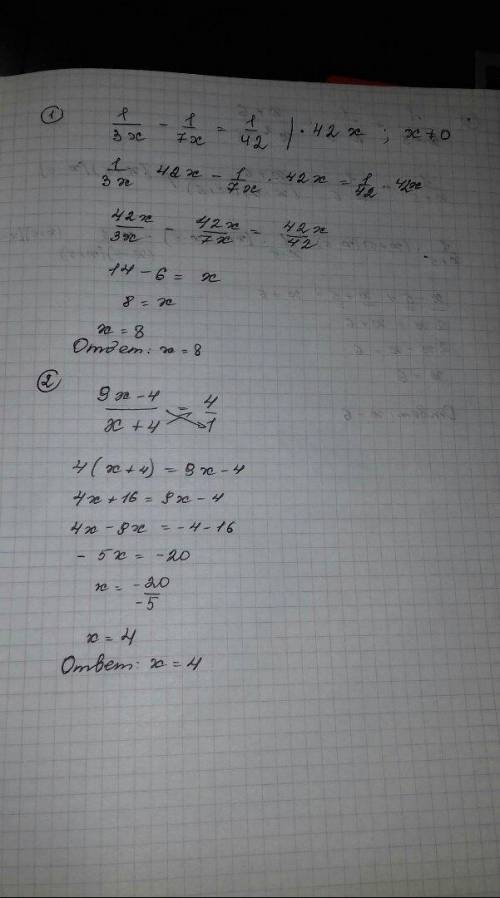 1
1/3x - 1/7x = 1/42 | · 42x ; x≠0
1/3x · 42x - 1/7x · 42x = 1/42 · 42x
42x/3x - 42x/7x = 42x/42
14 - 6 = x
8 = x
x = 8
Ответ: x = 8
2
9x - 4/x + 4 = 4/1
4(x+4) = 9x - 4
4x + 16 = 9x - 4
4x - 9x = -4 - 16
- 5x = -20
x = -20/-5
x = 4
Ответ: x = 4